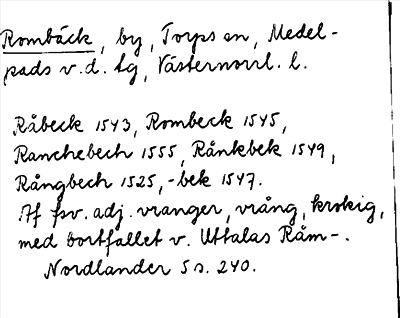 Rombäck, by, Torps sn, Medel-
pads v.d. tg, Västernorrl. l.
Råbeck 1543, Rombeck 1545,
Ranchebech 1555, Rånkbek 1549,
Rångbech 1525, -bek 1547.
Af fsv. adj. vranger, vrång, krokig,
med bortfallet v. Uttalas Råm-.
Nordlander 5 s. 240.